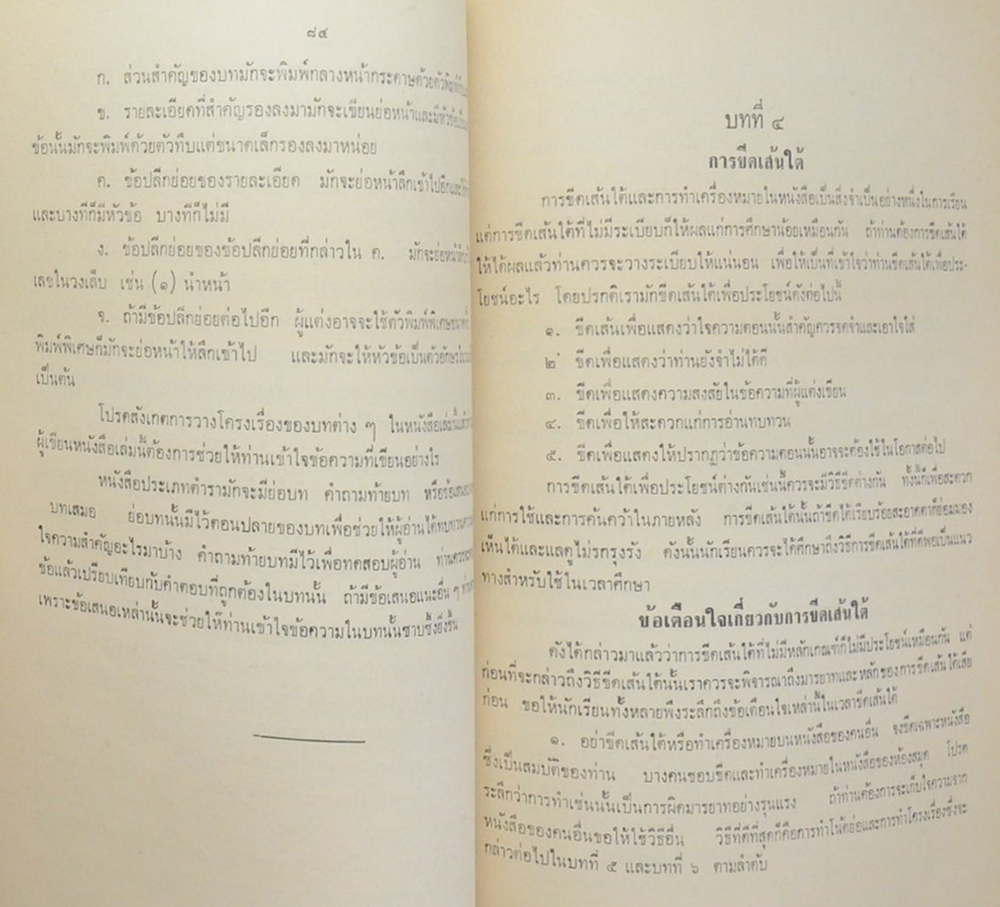 ๘๔
ก. ส่วนสำคัญของบทมักจะพิมพ์กลางหน้ากระดาษด้วยตัวพิมพ์
ข. รายละเอียดที่สำคัญรองลงมามักจะเขียนย่อหน้าและมีหัวข้อ
ข้อนั้นมักจะพิมพ์ด้วยตัวทึบแต่ขนาดเล็กรองลงมาหน่อย
ค. ข้อปลีกย่อยของรายละเอียด มักจะย่อหน้าลึกเข้าไปอีกและ
และบางทีก็มีหัวข้อ บางทีก็ไม่มี
ง. ข้อปลีกย่อยของข้อปลีกย่อยที่กล่าวใน ค. มักจะย่อหน้า
เลขในวงเล็บ เช่น (๑) นำหน้า
จ. ถ้ามีข้อปลีกย่อยต่อไปอีก ผู้แต่งอาจจะใช้ตัวพิมพ์พิเศษ
พิมพ์พิเศษก็มักจะย่อหน้าให้ลึกเข้าไป และมักจะให้หัวข้อเป็นตัวอักษร
เป็นต้น
โปรดสังเกตการวางโครงเรื่องของบทต่าง ๆ ในหนังสือเล่มนี้
ผู้เขียนหนังสือเล่มนี้ต้องการช่วยให้ท่านเข้าใจข้อความที่เขียนอย่างไร
หนังสือประเภทตำรามักจะมีย่อบท คำถามท้ายบท หรือข้อเสนอ
บทเสมอ ย่อบทนั้นมีไว้ตอนปลายของบทเพื่อช่วยให้ผู้อ่านได้ทบทวน
ใจความสำคัญอะไรมาบ้าง คำถามท้ายบทมีไว้เพื่อทดสอบผู้อ่าน ท่านควร
ข้อแล้วเปรียบเทียบกับคำตอบที่ถูกต้องในบทนั้น ถ้ามีข้อเสนอแนะอื่น ๆ
เพราะข้อเสนอเหล่านั้นจะช่วยให้ท่านเข้าใจข้อความในบทนั้นซาบซึ้งยิ่งขึ้น
บทที่ ๔
การขีดเส้นใต้
การขีดเส้นใต้และการทำเครื่องหมายในหนังสือเป็นสิ่งจำเป็นอย่างหนึ่งในการเรียน
แต่การขีดเส้นใต้ที่ไม่มีระเบียบก็ให้ผลแก่การศึกษาน้อยเหมือนกัน ถ้าท่านต้องการขีดเส้นใต้
ให้ได้ผลแล้วท่านควรจะวางระเบียบให้แน่นอน เพื่อให้เป็นที่เข้าใจว่าท่านขีดเส้นใต้เพื่อประ-
โยชน์อะไร โดยปรกติเรามักขีดเส้นใต้เพื่อประโยชน์ดังต่อไปนี้
๑. ขีดเส้นเพื่อแสดงว่าใจความตอนนั้นสำคัญควรจดจำและเอาใจใส่
๒ ขีดเพื่อแสดงว่าท่านยังจำไม่ได้ดี
๓. ขีดเพื่อแสดงความสงสัยในข้อความที่ผู้แต่งเขียน
๔. ขีดเพื่อให้สะดวกแก่การอ่านทบทวน
๕. ขีดเพื่อแสดงให้ปรากฏว่าข้อความตอนนั้นอาจจะต้องใช้ในโอกาสต่อไป
การขีดเส้นใต้เพื่อประโยชน์ต่างกันเช่นนี้ควรจะมีวิธีขีดต่างกัน ทั้งนี้ก็เพื่อสะดวก
แก่การใช้และการค้นคว้าในภายหลัง การขีดเส้นใต้นั้นถ้าขีดได้เรียบร้อยสะอาดตาก็ย่อมมอง
เห็นได้และแลดูไม่รกรุงรัง ดังนั้นนักเรียนควรจะได้ศึกษาถึงวิธีการขีดเส้นใต้ที่ดีพอเป็นแนว
ทางสำหรับใช้ในเวลาศึกษา
ข้อเตือนใจเกี่ยวกับการขีดเส้นใต้
ดังได้กล่าวมาแล้วว่าการขีดเส้นใต้ที่ไม่มีหลักเกณฑ์ก็ไม่มีประโยชน์เหมือนกัน แต่
ก่อนที่จะกล่าวถึงวิธีขีดเส้นใต้นั้นเราควรจะพิจารณาถึงมารยาทและหลักของการขีดเส้นใต้เสีย
ก่อน ขอให้นักเรียนทั้งหลายพึงระลึกถึงข้อเตือนใจเหล่านี้ในเวลาขีดเส้นใต้
๑. อย่าขีดเส้นใต้หรือทำเครื่องหมายบนหนังสือของคนอื่น จงขีดเฉพาะหนังสือ
ซึ่งเป็นสมบัติของท่าน บางคนชอบขีดและทำเครื่องหมายในหนังสือของห้องสมุด โปรด
ระลึกว่าการทำเช่นนั้นเป็นการผิดมารยาทอย่างรุนแรง ถ้าท่านต้องการจะเก็บใจความจาก
หนังสือของคนอื่นขอให้ใช้วิธีอื่น วิธีที่ดีที่สุดก็คือการทำโน้ตย่อและการทำโครงเรื่องซึ่งจะ
กล่าวต่อไปในบทที่ ๕ และบทที่ ๖ ตามลำดับ